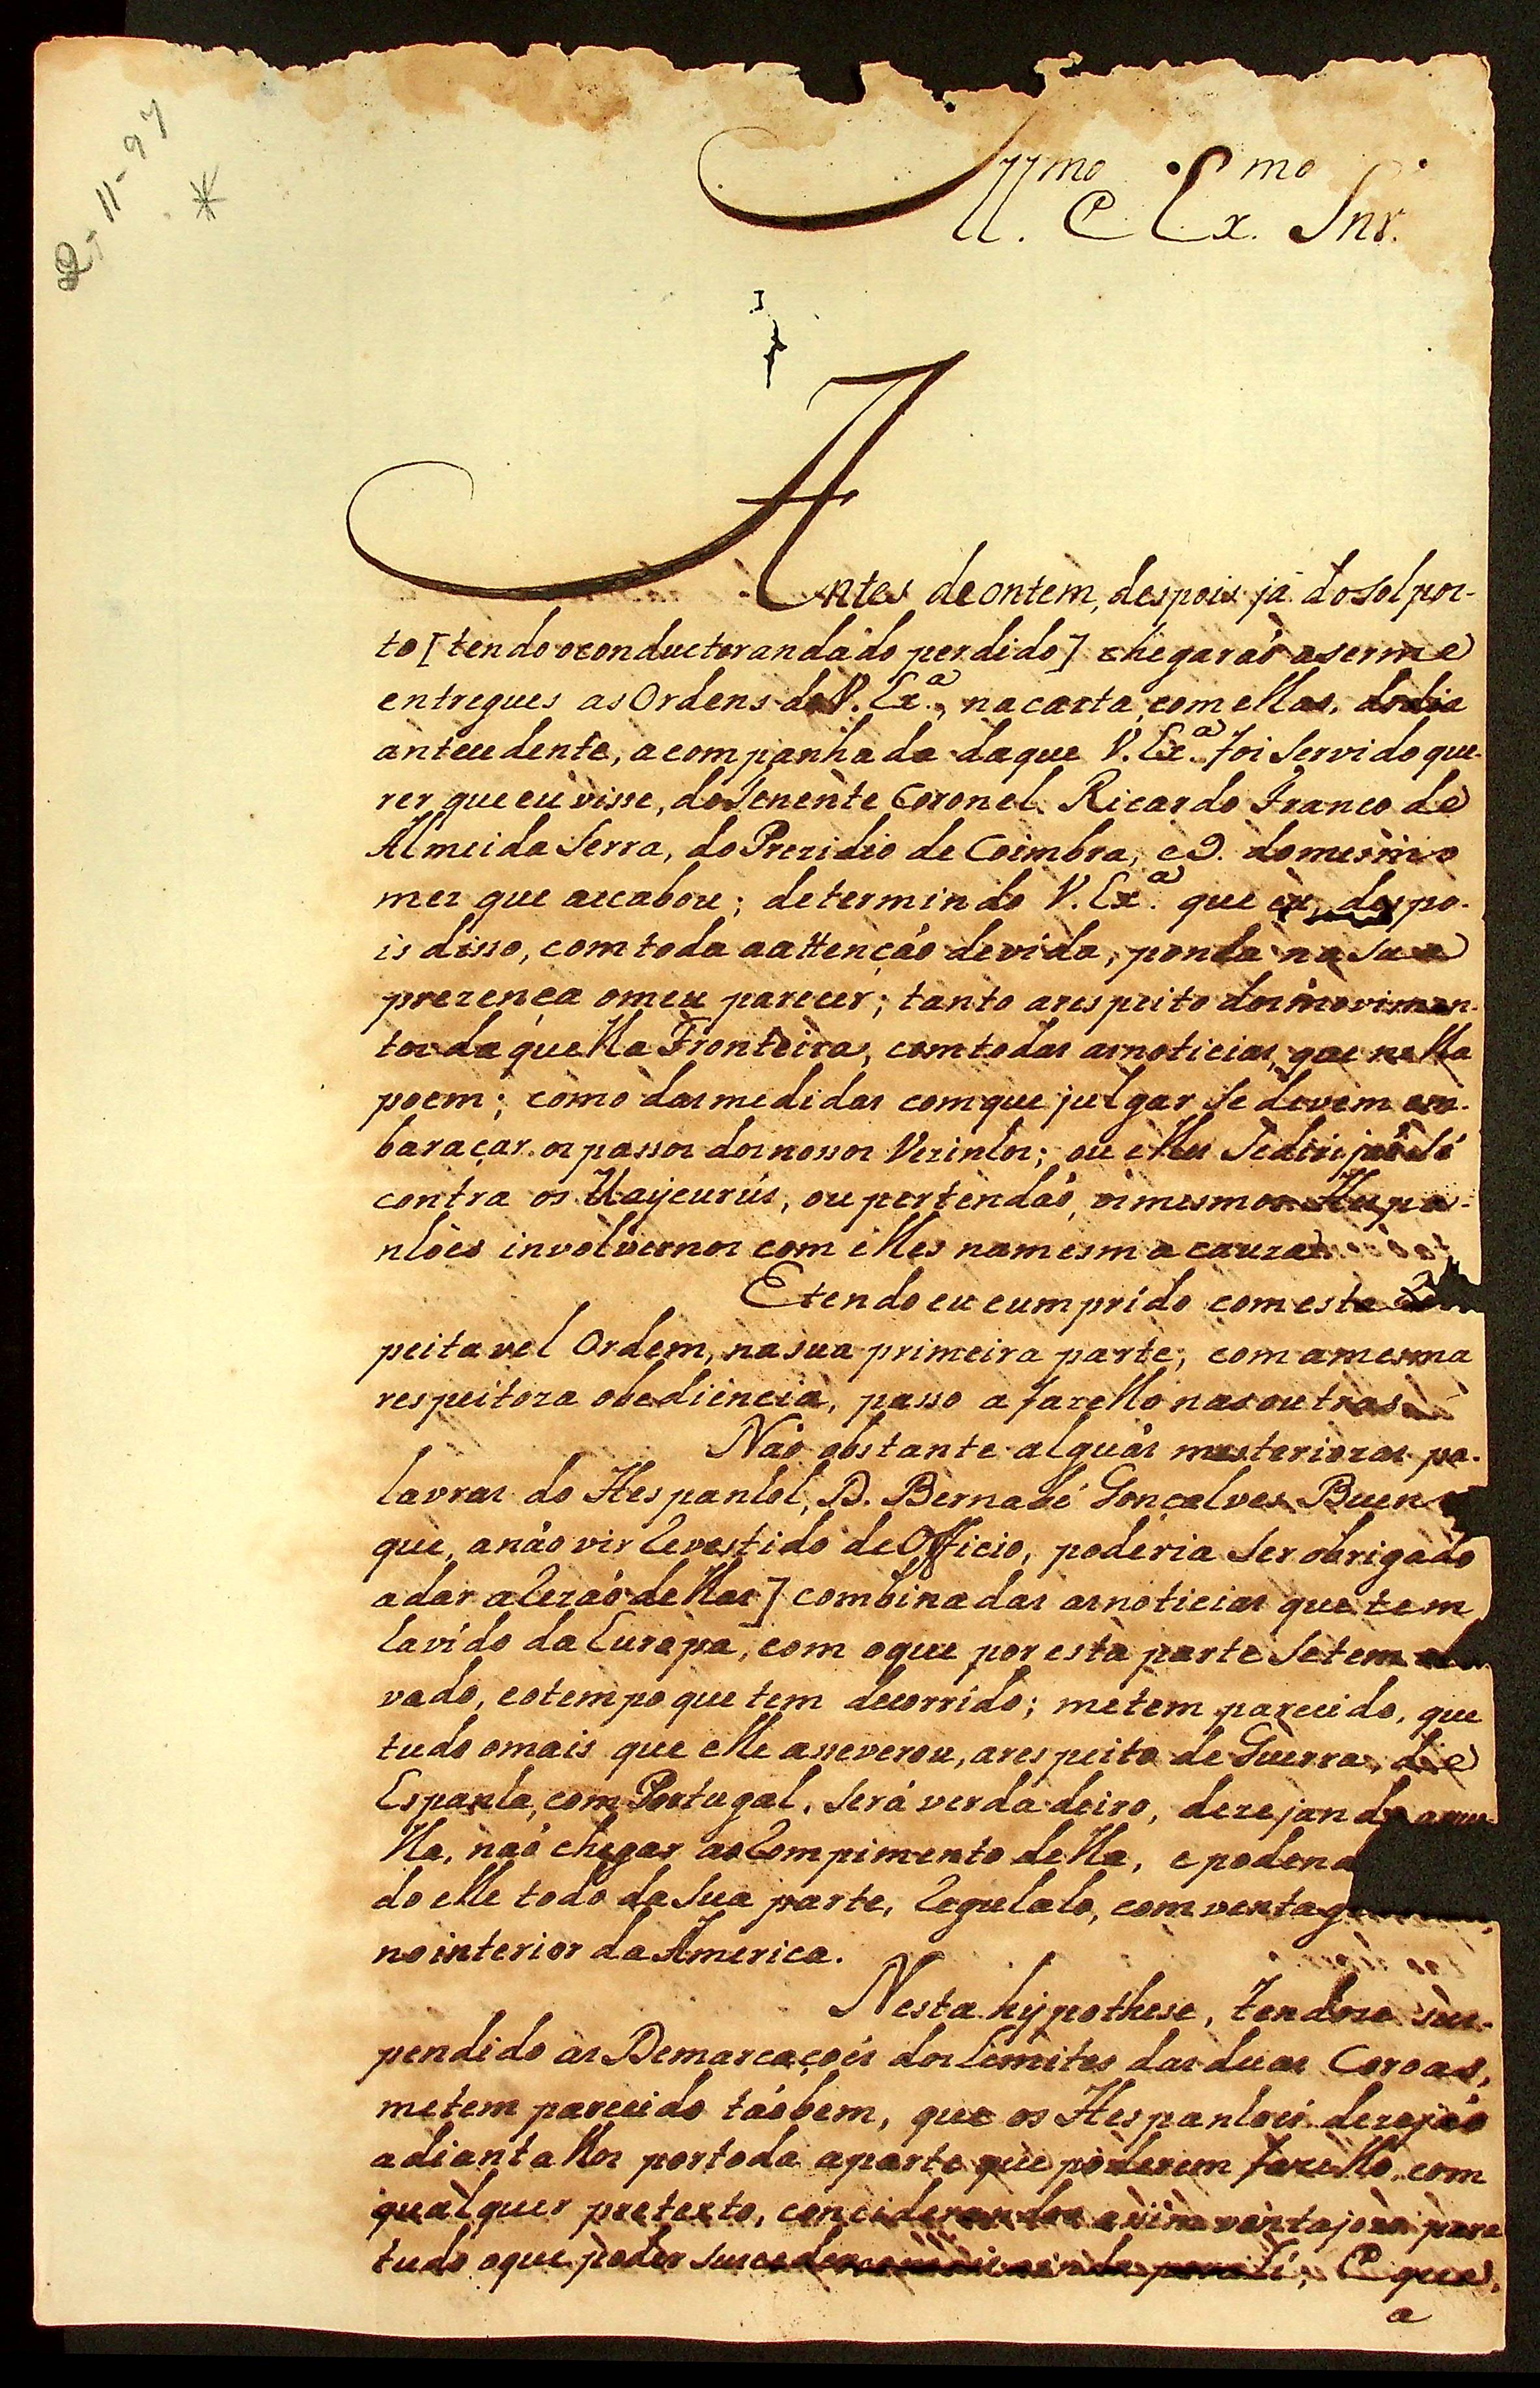 2-11-97
*
Ill.mo e Ex.mo Snr.
Antes de ontem, despois já do sol pos-
to [tendo o conductor andado perdido] chegaraõ a serme
entregues as Ordens de V. Ex.a, na carta, com ellas, do dia
antecedente, acompanhada da que V. Ex.a foi servido que-
rer que eu visse, do Tenente Coronel Ricardo Franco de
Almeida Serra, do Prezidio de Coimbra, e 9. do mesmo
mez que accabou; determindo V. Ex.a que eu, despo-
is disso, com toda a attençaõ devida, ponha na sua
prezença o meu parecer; tanto a respeito dos movimen-
tos daquella Fronteira, com todas as noticias, que nella
poem; como das medidas com que julgar se devem em-
baraçar os passos dos nossos Vezinhos; ou elles se dirijaõ só
contra os Uaycurús, ou pertendaõ, os mesmos Hespa-
nhoes involvernos com elles na mesma cauza.
E tendo eu cumprido com esta
peitavel Ordem, na sua primeira parte, com a mesma
respeitoza obediencia, passo a fazello nas outras.
Naõ obstante alguãs misteriozas pa-
lavras do Hespanhol, D. Bernabé Gonçalves Buen
que, a naõ vir revestido de Officio, poderia ser obrigado
a dar a rezaõ dellas] combinadas as noticias que tem
havido da Europa, com o que por esta parte se tem
vado, e o tempo que tem decorrido; me tem parecido, que
tudo o mais que elle asseverou, a respeito de Guerra, de
Espanha, com Portugal, será verdadeiro, dezejando
lla, naõ chegar ao rompimento della, e podend
do elle todo da sua parte, regulalo, com ventag
no interior da America.
Nesta hypothese, tendose sus-
pendido as Demarcaçoẽs dos limites das duas Coroas,
me tem parecido taõbem, que os Hespanhoes dezejaõ
adiantallos por toda a parte que poderem fazello, com
qualquer pretexto, conciderandoo assim ventajozo para
tudo o que poder succeder ainda para si; E que,
a